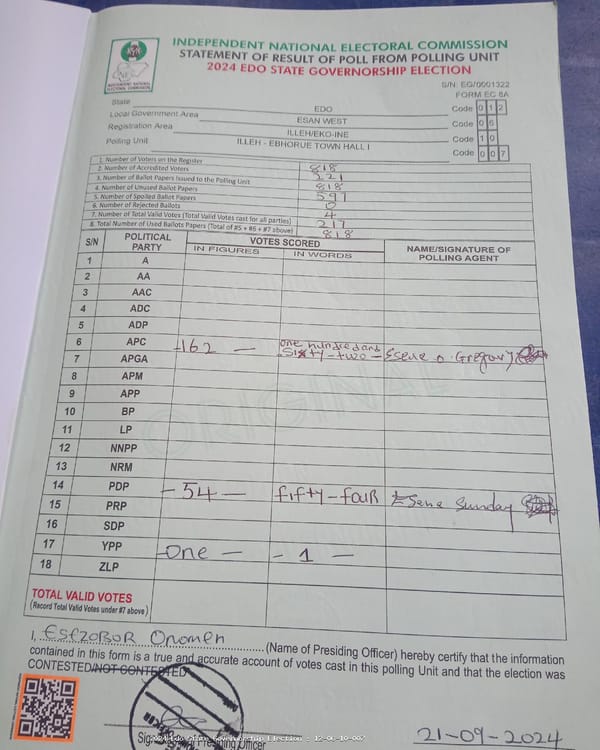 INDEPENDENT NATIONAL ELECTORAL COMMISSION
STATEMENT OF RESULT OF POLL FROM POLLING UNIT
2024 EDO STATE GOVERNORSHIP ELECTION
INDEPENDENT NATIONAL
ELECTORAL COMMISSION
S/N: EG/0001322
FORM EC 8A
State EDO Code 0 1 2
Local Government Area ESAN WEST Code 0 6
Registration Area ILLEH/EKO-INE Code 1 0
Polling Unit ILLEH - EBHORUE TOWN HALL I Code 0 0 7
1. Number of Voters on the Register 818
2. Number of Accredited Voters 221
3. Number of Ballot Papers Issued to the Polling Unit 818
4. Number of Unused Ballot Papers 597
5. Number of Spoiled Ballot Papers 0
6. Number of Rejected Ballots 4
7. Number of Total Valid Votes (Total Valid Votes cast for all parties) 217
8. Total Number of Used Ballots Papers (Total of #5 + #6 + #7 above) 818
S/N POLITICAL PARTY VOTES SCORED NAME/SIGNATURE OF POLLING AGENT
IN FIGURES IN WORDS
1 A
2 AA
3 AAC
4 ADC
5 ADP
6 APC -162 - one hundred and sixty-two - Esene O. Gregory
7 APGA
8 APM
9 APP
10 BP
11 LP
12 NNPP
13 NRM
14 PDP - 54 - fifty-four Esene Sunday
15 PRP
16 SDP
17 YPP -One - - 1 -
18 ZLP
ORIGINAL
TOTAL VALID VOTES
(Record Total Valid Votes under #7 above)
I, ESEZOBOR Onomen (Name of Presiding Officer) hereby certify that the information
contained in this form is a true and accurate account of votes cast in this polling Unit and that the election was
CONTESTED/NOT CONTESTED
2024 Edo State Governorship Election : 12-06-10-007
Presiding Officer
21-09-2024